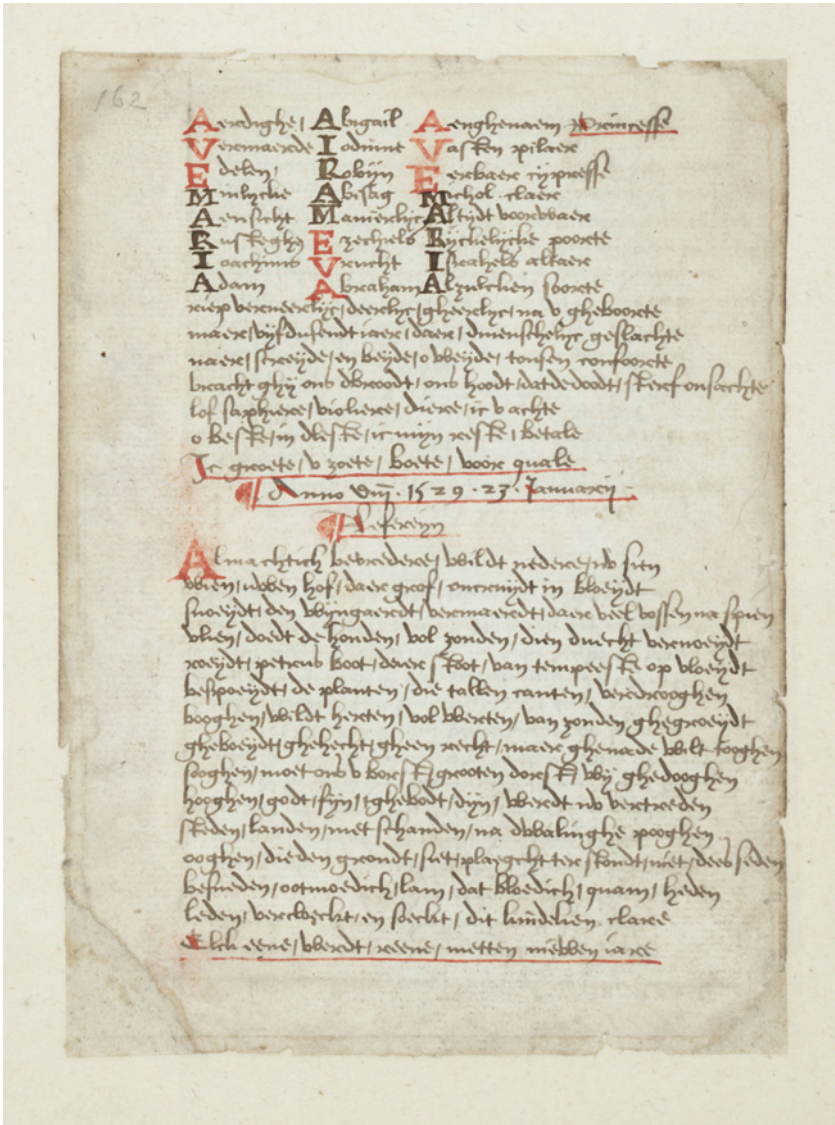 162
Aerdighe / Abigail Aenghenaem Princesse
Vermaerde Iodinne Vasten pilaer
Edelen / Robyn Eerbaer cypresse
Minlycke Abesag Michol claer
Aensicht Manierlyc Altydt voorwaer
Rusteghe Ezechiels Ryckelycke poorte
Ioachims Vrucht Israhels altaer
Adam Abraham Alzulcken soorte
riep vermeerlyc / deerlyc / gheerlyc / na v gheboorte
maer / vyfdusendt iaer / daer / dmenschelyc geslachte
naer / screyde / en beyde / o weyde / tonsen confoorte
bracht ghy ons dbroodt / ons hoodt / dat de doodt / sterf onsachte
lof saphiere / violiere / diere / ic v achte
o beste / in dleste / ic myn reste / betale
Ic groete / v zoete / boete / voor quale
Anno 1529 . 23 . Januarij
Refereyn
Almachtich bevredere / wildt nedere / nv sien
wien / uwen hof / daer grof / oncruydt in bloeydt
snoeydt / den wyngaerdt / vermaerdt / daer veel vossen na spien
vlien / doedt de honden / vol zonden / dien duecht vernoeydt
roeydt / petrus boot / devre stoot / van tempeeste op vloeydt
bespoeydt / de planten / die tallen canten / verdrooghen
booghen / wildt herten / vol werten / van zonden ghegroeydt
gheboeydt / ghehecht / gheen recht / maer ghenade wilt tooghen
sooghen / moet ons v borst / grooten dorst / wy ghedooghen
hooghen / godt / fyn / tghebodt / dyn / werdt nv vertreden
steden / landen / met schanden / na dwalinghe pooghen
ooghen / die den grondt / siet / plaegcht ter stondt / niet / dees seden
besneden / ootmoedich / lam / dat bloedich / quam / heden
leden / verwect / en soect / dit kindekien clare
Elck eene / werdt / reene / metten nieuwen iare